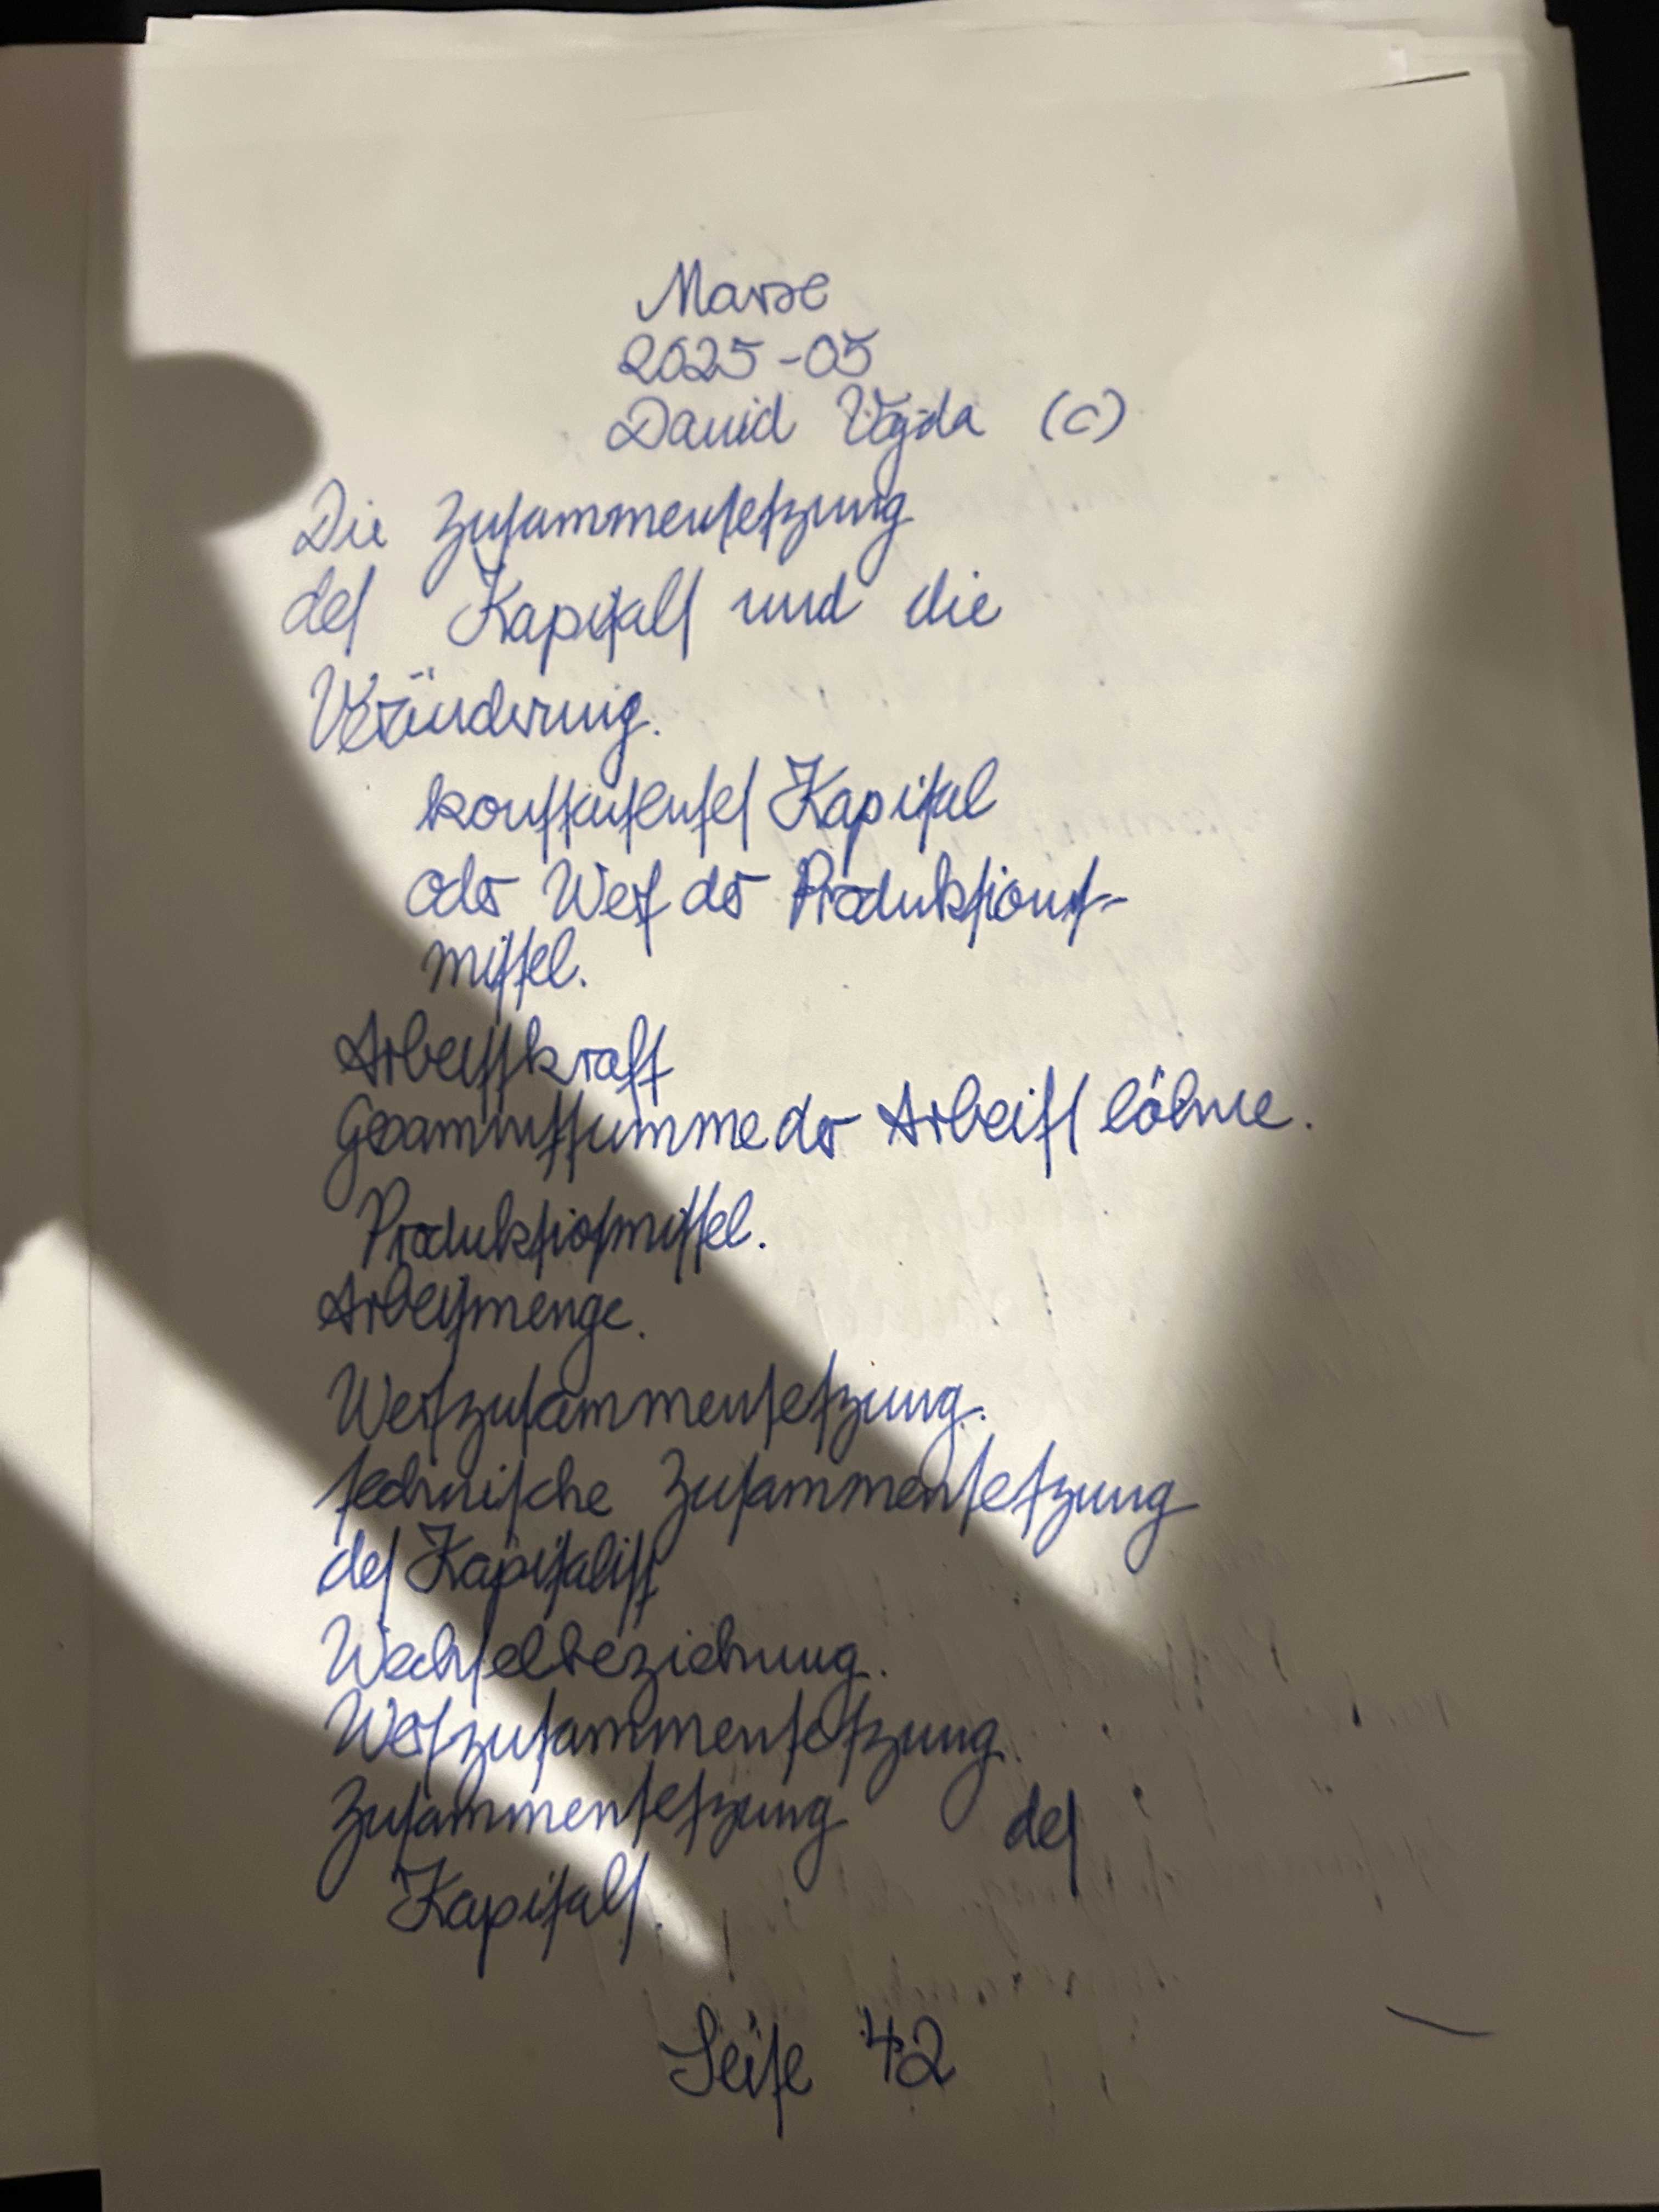 Marx
2025-05
David Vajda (C)
Die Zusammensetzung
des Kapitals und die
Veränderung.
konstantentes Kapital
oder Wert der Produktions-
mittel.
Arbeitskraft
Gesammtsumme der Arbeitslöhne.
Produktiosmittel.
Arbeitsmenge.
Wertzusammensetzung.
technische Zusammensetzung
des Kapitalist
Wechselbeziehung.
Wertzusammensetzung
Zusammensetzung des
Kapitals.
Seite 42